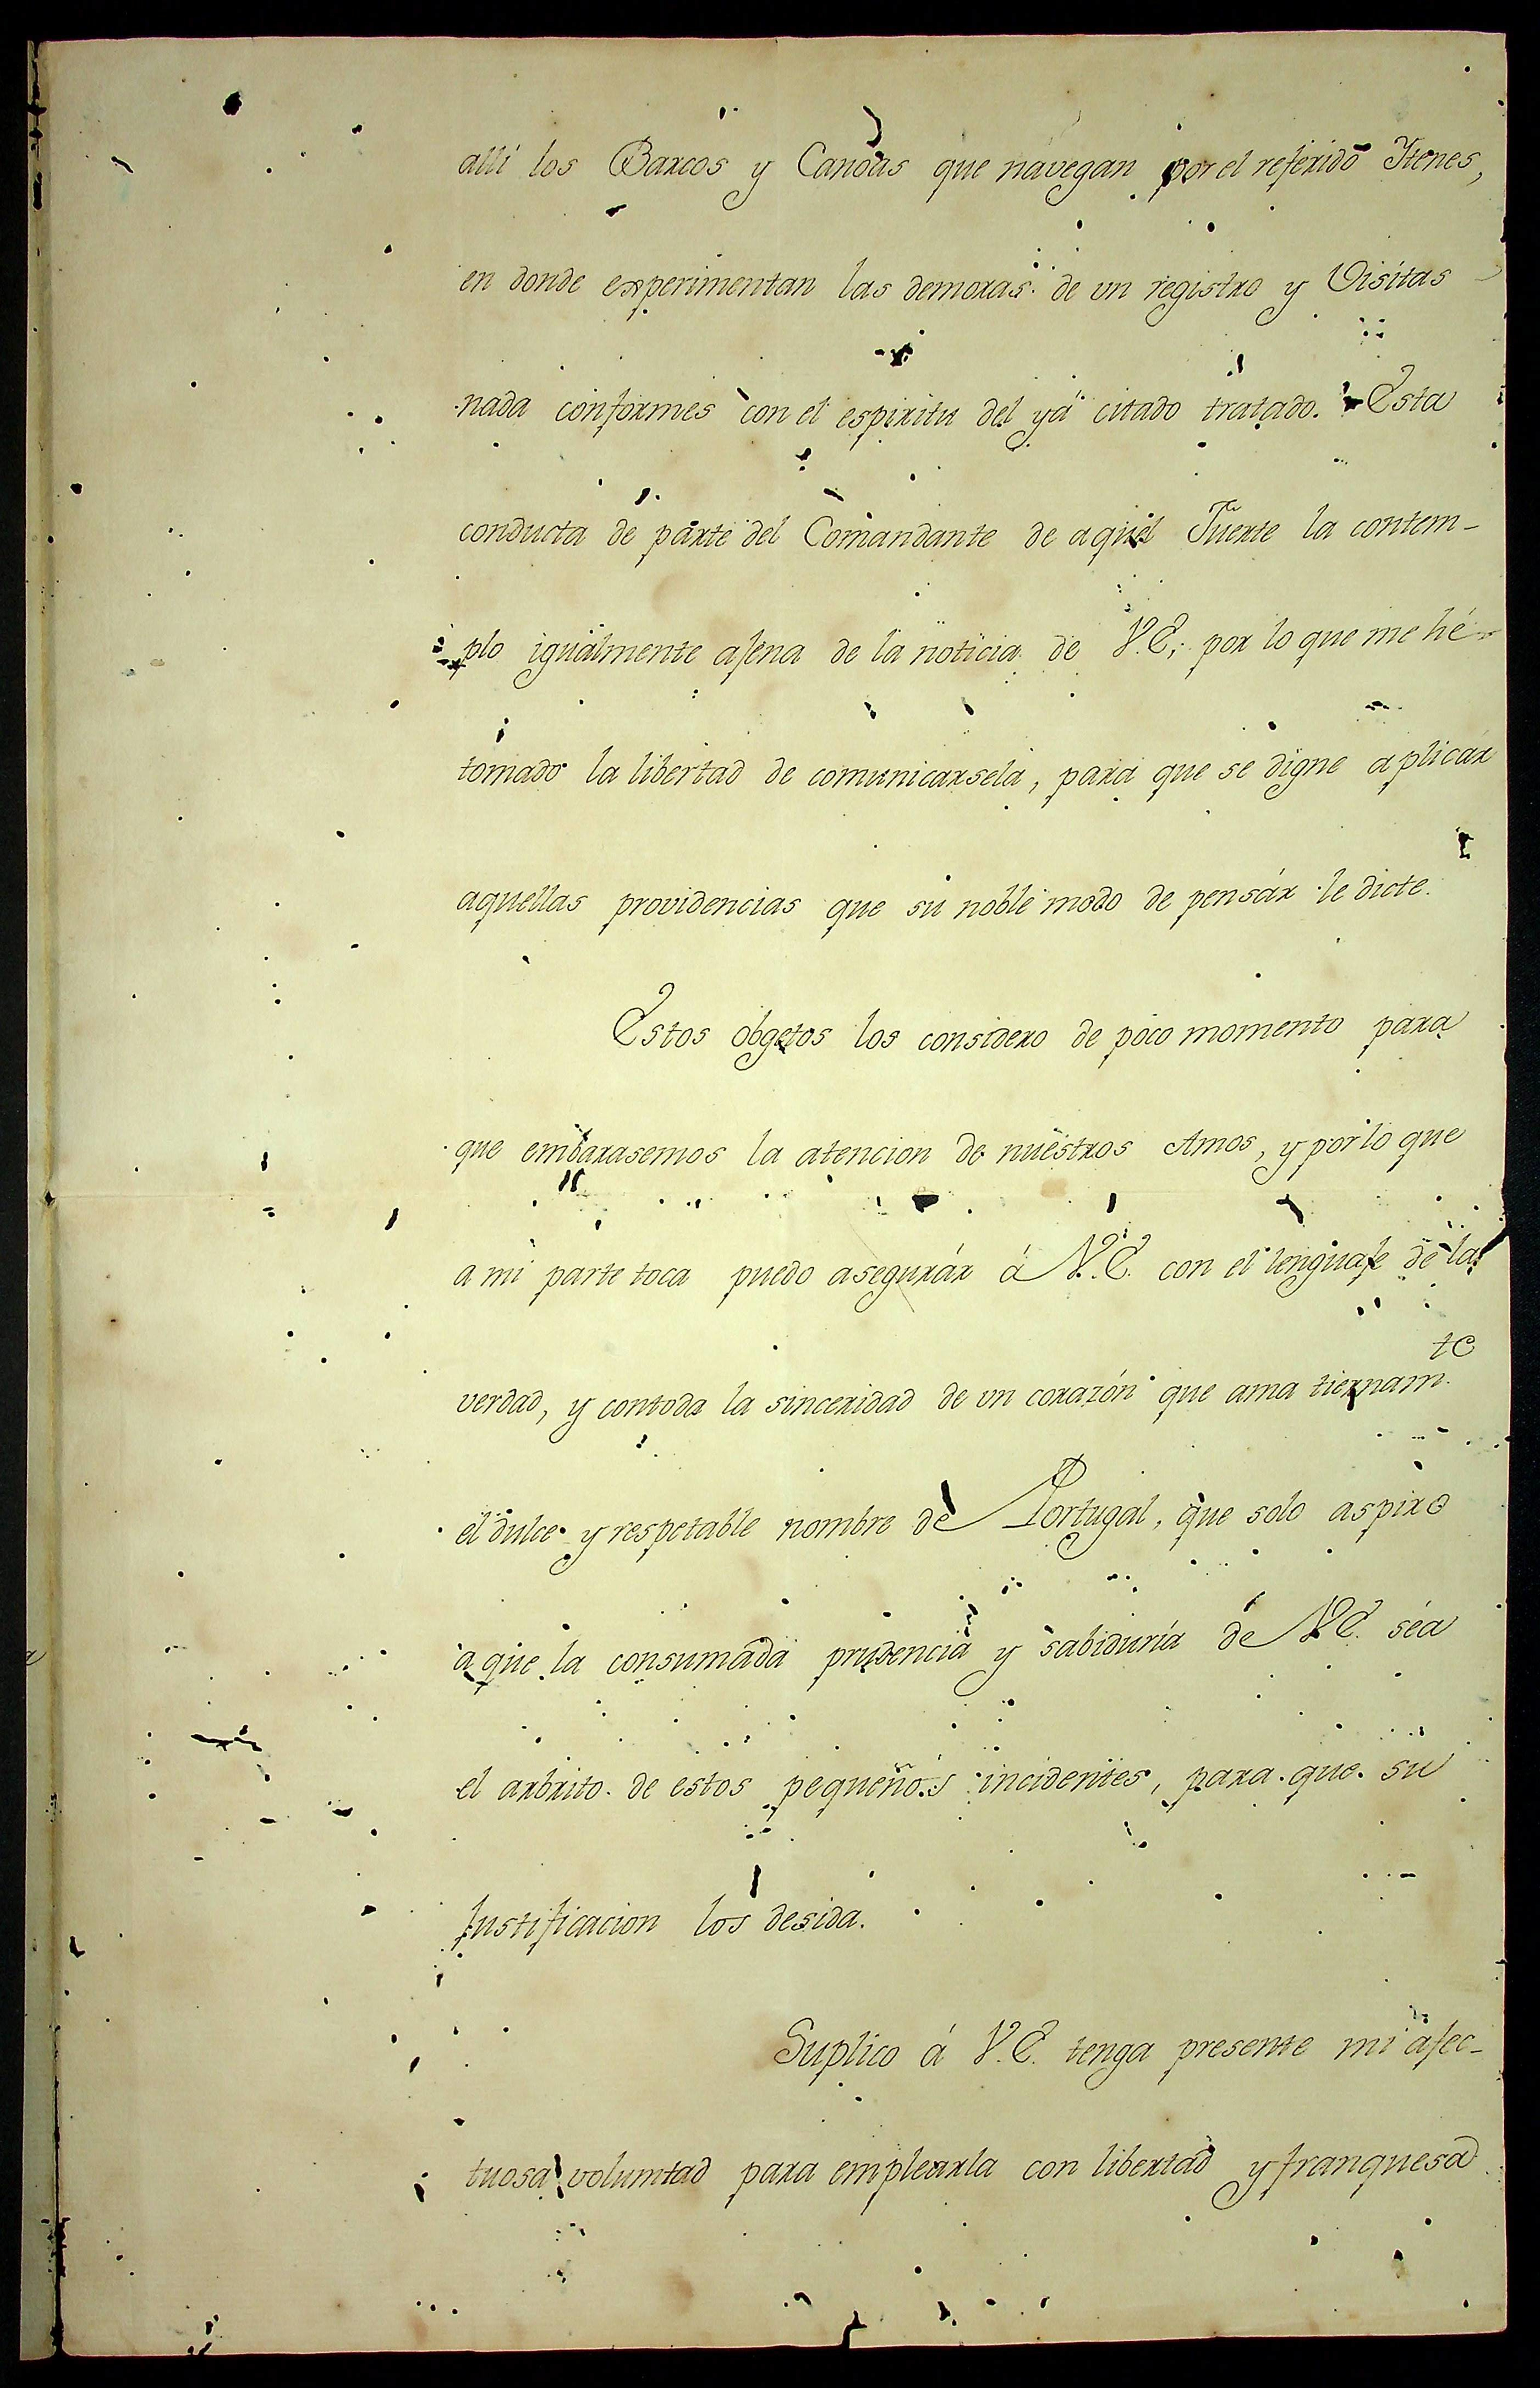 alli los Barcos y Canoas que navegan por el referido Itenes,
en donde experimentan las demoras de un registro y Visitas
nada conformes con el espiritu del yá citado tratado. Esta
conducta de parte del Comandante de aquel Fuerte la contem-
plo igualmente ajena de la noticia de V.E, por lo que me hé
tomado la libertad de comunicarsela, para que se digne aplicár
aquellas providencias que su noble modo de pensár le dicte.
Estos obgetos los considero de poco momento para
que embarasemos la atencion de nuestros Amos, y por lo que
a mi parte toca puedo asegurár á V.E. con el lenguaje de la
verdad, y con toda la sinceridad de un corazón que ama tiernam.te
el dulce y respetable nombre de Portugal, que solo aspiro
a que la consumada prudencia y sabiduría de V.E. séa
el arbrito de estos pequeños incidentes, para que su
Justificacion los desida.
Suplico á V.E. tenga presente mi afec-
tuosa voluntad para emplearla con libertad y franquesa